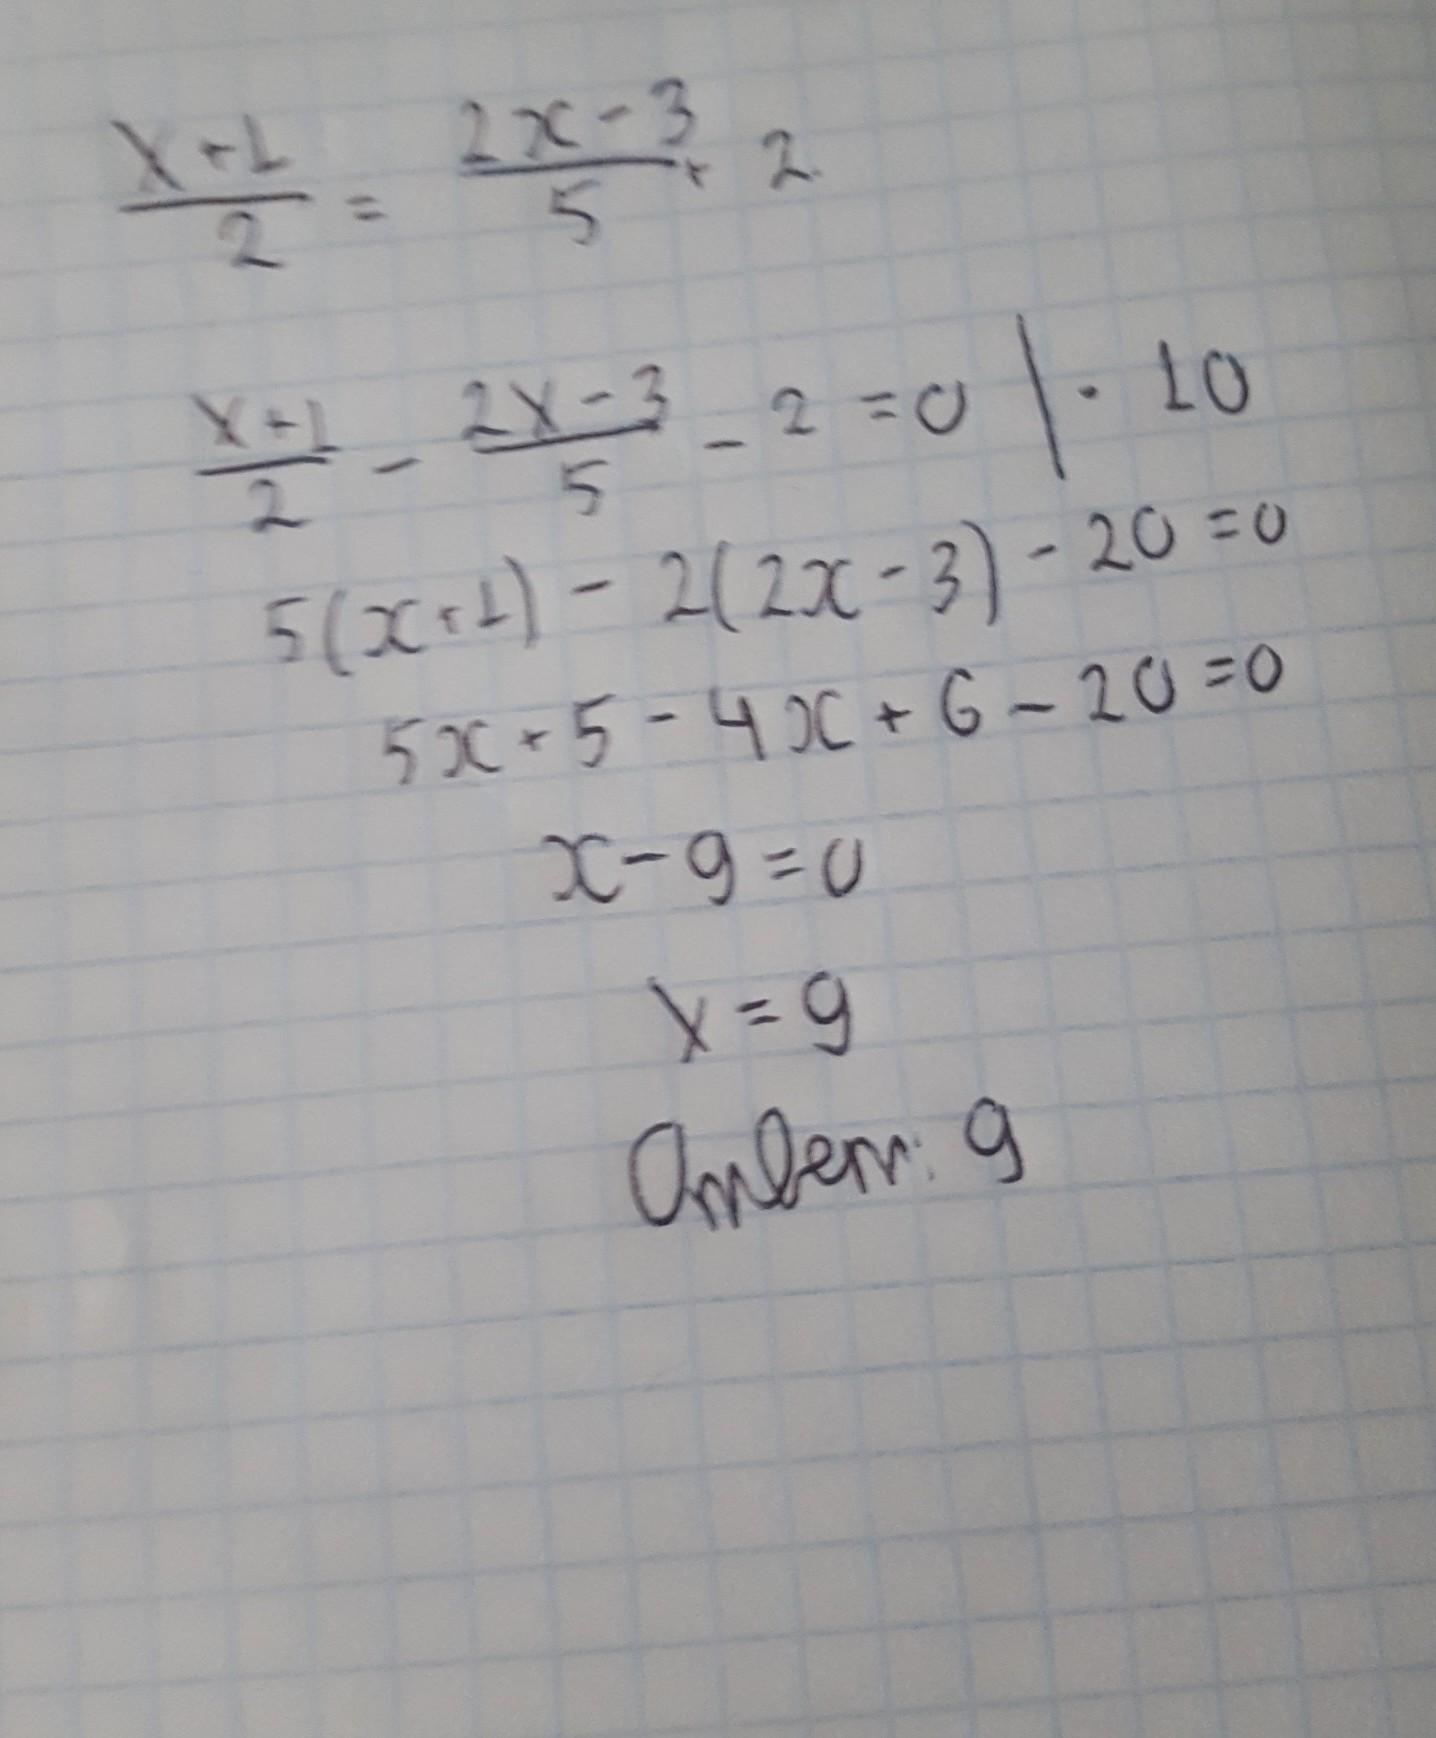 x+1/2 = 2x-3/5 + 2
x+1/2 - 2x-3/5 - 2 = 0 | · 10
5(x+1) - 2(2x-3) - 20 = 0
5x+5-4x+6-20=0
x-9=0
x=9
Ответ: 9